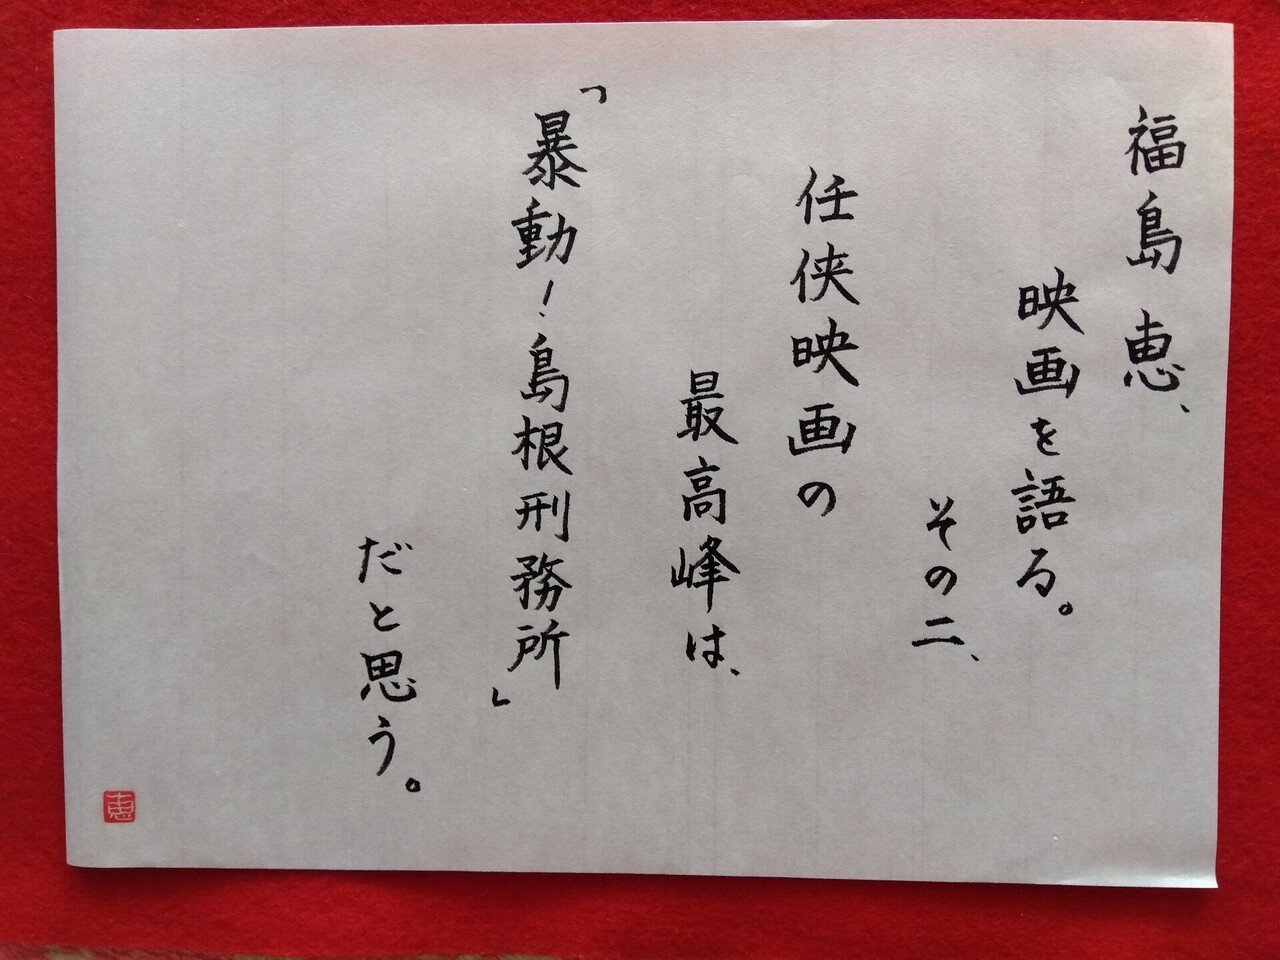 福島恵、
映画を語る。
その二、
任侠映画の
最高峰は、
「暴動！島根刑務所」
だと思う。
恵